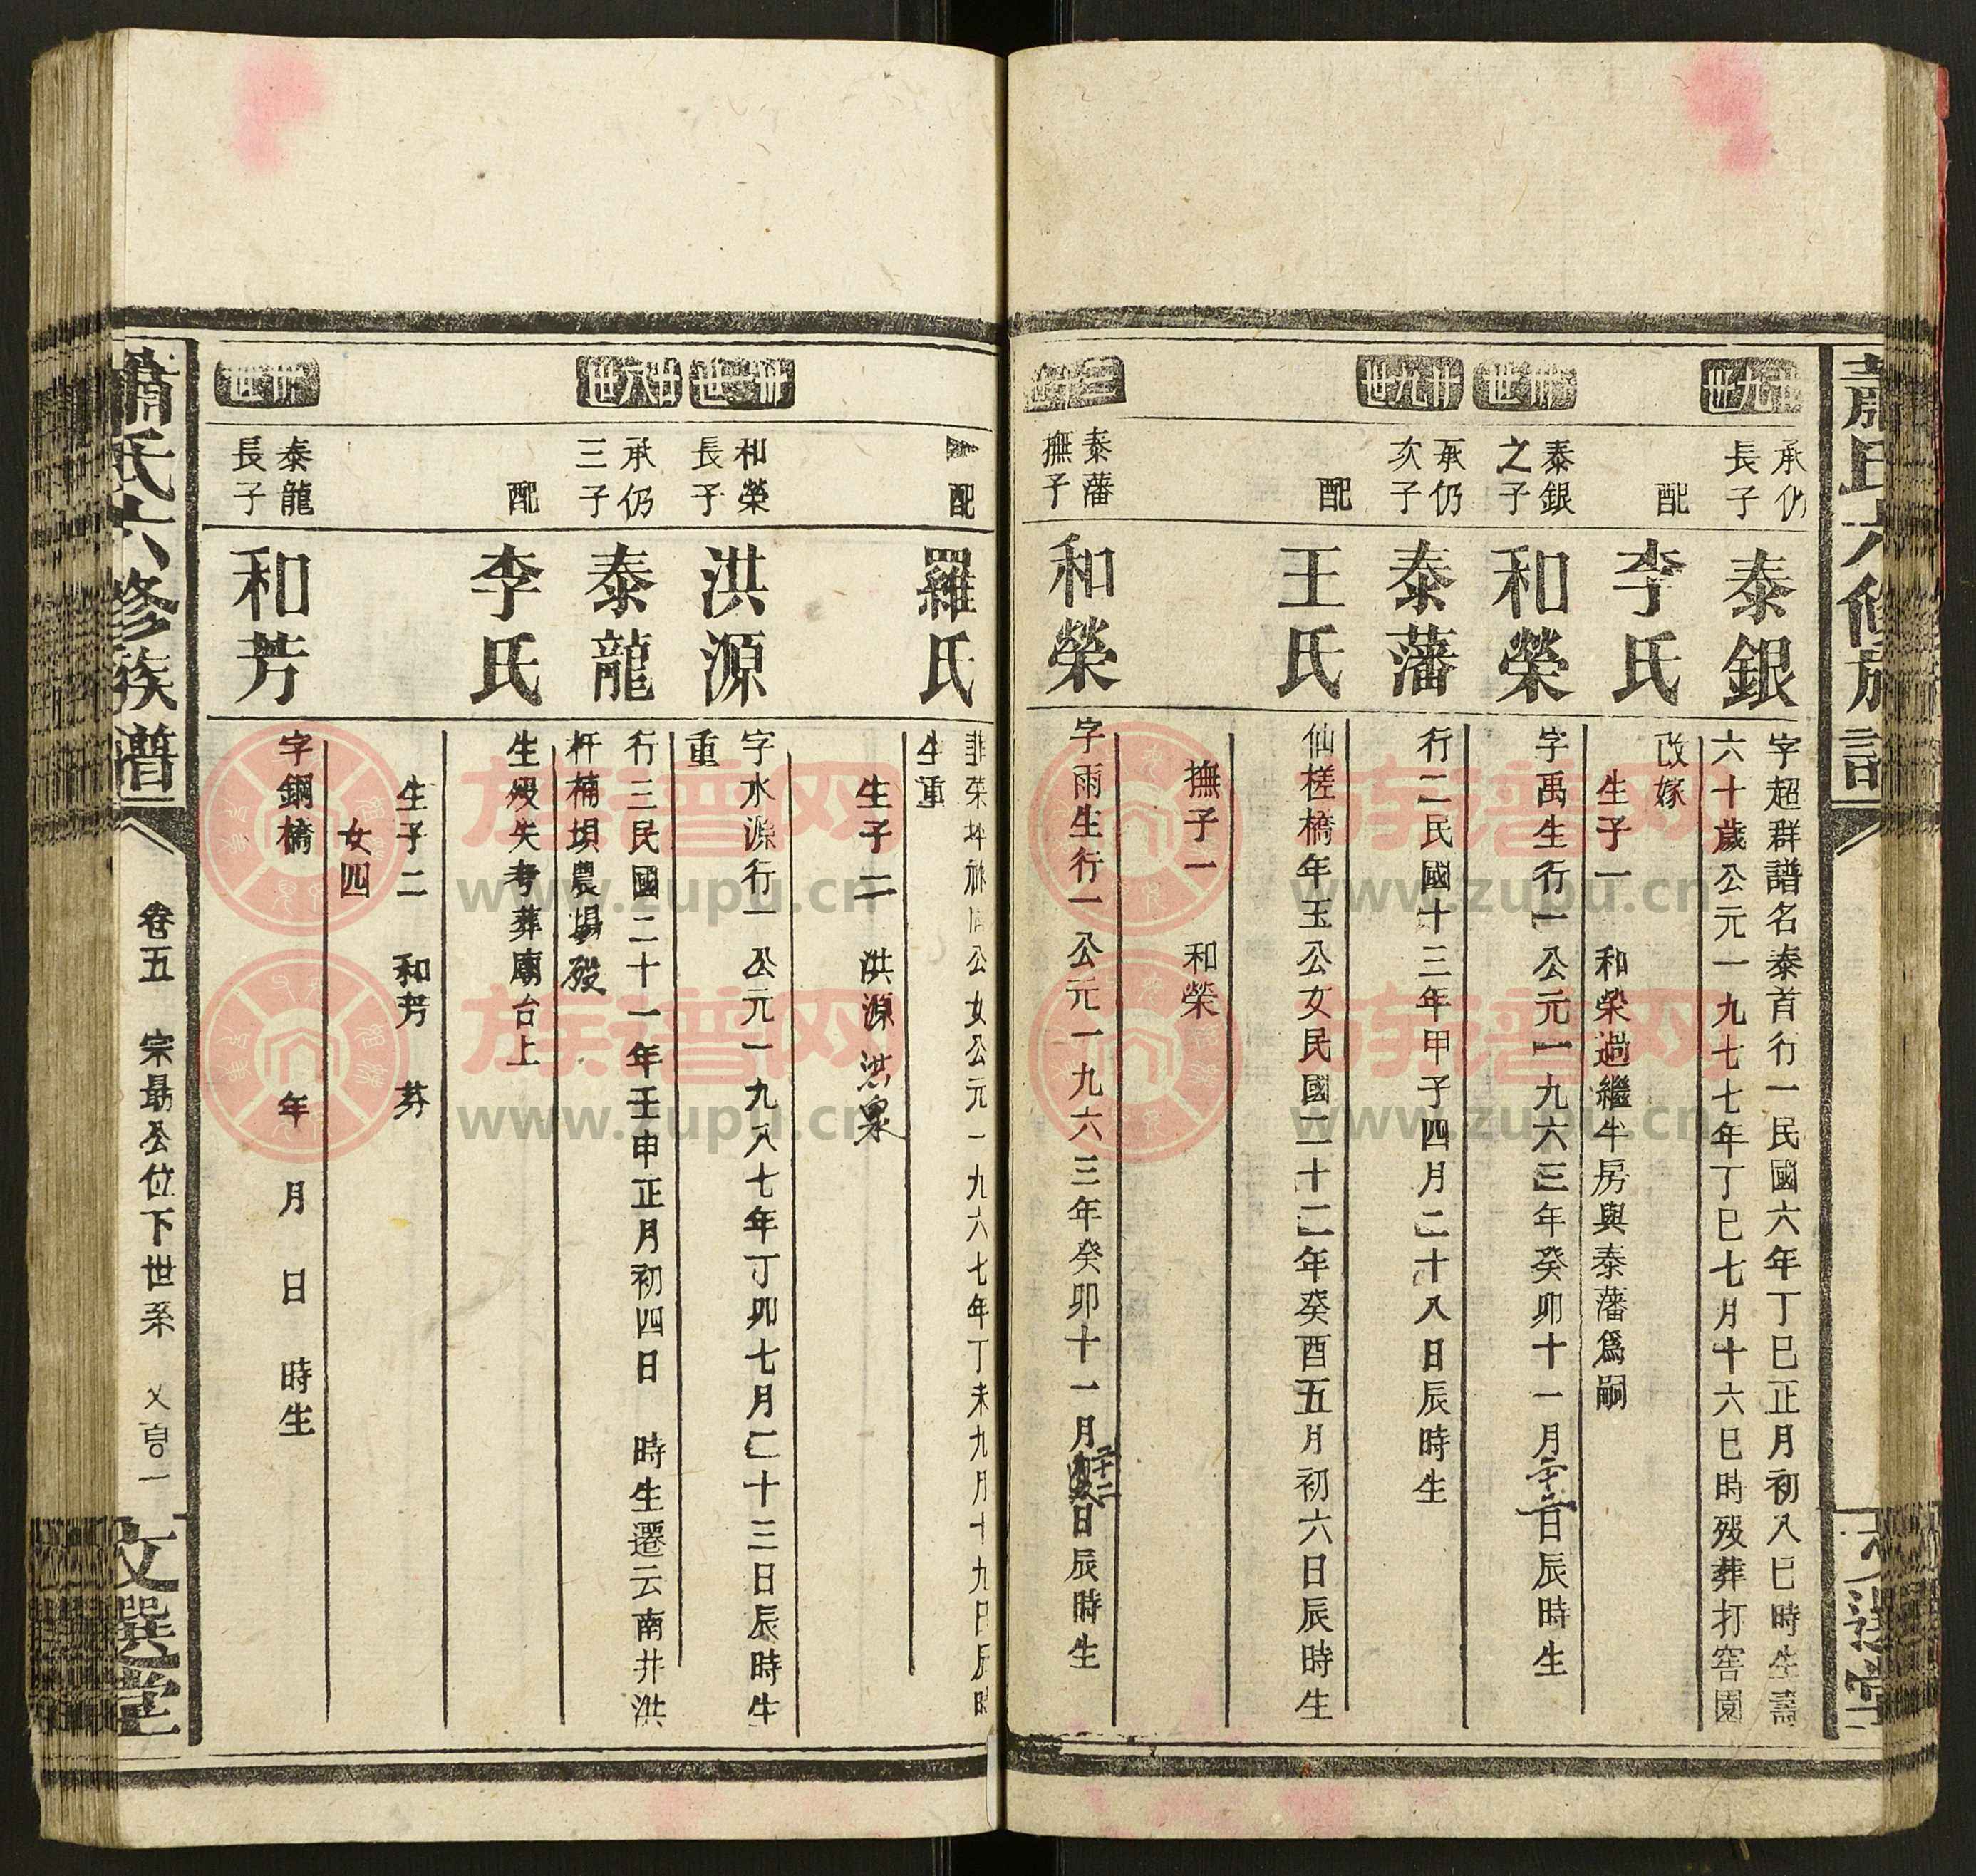 蕭氏六修族譜
文選堂
廿九世
承仍
長子
泰銀
字超群譜名泰首行一民國六年丁巳正月初八巳時生壽
六十歲公元一九七七年丁巳七月十六巳時殁葬打窖園
配
李氏
改嫁
生子一 和榮過繼牛房與泰藩爲嗣
卅世
泰銀
之子
和榮
字禹生行一公元一九六三年癸卯十一月日辰時生
廿九世
承仍
次子
泰藩
行二民國十三年甲子四月二十八日辰時生
配
王氏
仙槎橋年玉公女民國二十二年癸酉五月初六日辰時生
撫子一 和榮
三十世
泰藩
撫子
和榮
字雨生行一公元一九六三年癸卯十一月二十二日辰時生
配
羅氏
公女公元一九六七年丁未九月十九日辰時
生重
生子二 洪源 洪泉
卅一世
和榮
長子
洪源
字水源行一公元一九八七年丁卯七月二十三日辰時生
重
廿八世
承仍
三子
泰龍
行三民國二十一年壬申正月初四日 時生遷云南井洪
杆楠垻農場殁
配
李氏
生殁失考葬廟台上
生子二 和芳 芬
女四
卅世
泰龍
長子
和芳
字鋼橋 年 月 日 時生
蕭氏六修族譜
卷五 宗最公位下世系
文選堂
族譜网
www.zupu.cn
族譜网
www.zupu.cn
族譜网
www.zupu.cn
族譜网
www.zupu.cn